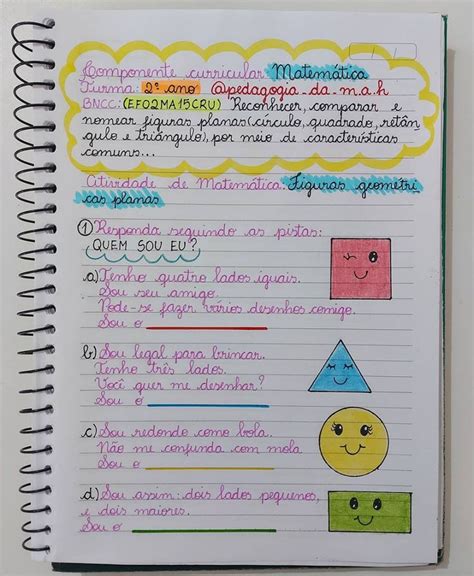 Componente curricular: Matemática
Turma: 2º ano @pedagogia_da_m.a.h
BNCC: (EF02MA15CRU) Reconhecer, comparar e
nomear figuras planas (círculo, quadrado, retân
gulo e triângulo), por meio de características
comuns...
Atividade de Matemática: Figuras geométri
cas planas
1 Responda seguindo as pistas:
QUEM SOU EU?
a) Tenho quatro lados iguais.
Sou seu amigo.
Pode-se fazer vários desenhos comigo.
Sou o
b) Sou legal para brincar.
Tenho três lados.
Você quer me desenhar?
Sou o
c) Sou redondo como bola.
Não me confunda com mola
Sou o
d) Sou assim: dois lados pequenos,
e dois maiores.
Sou o